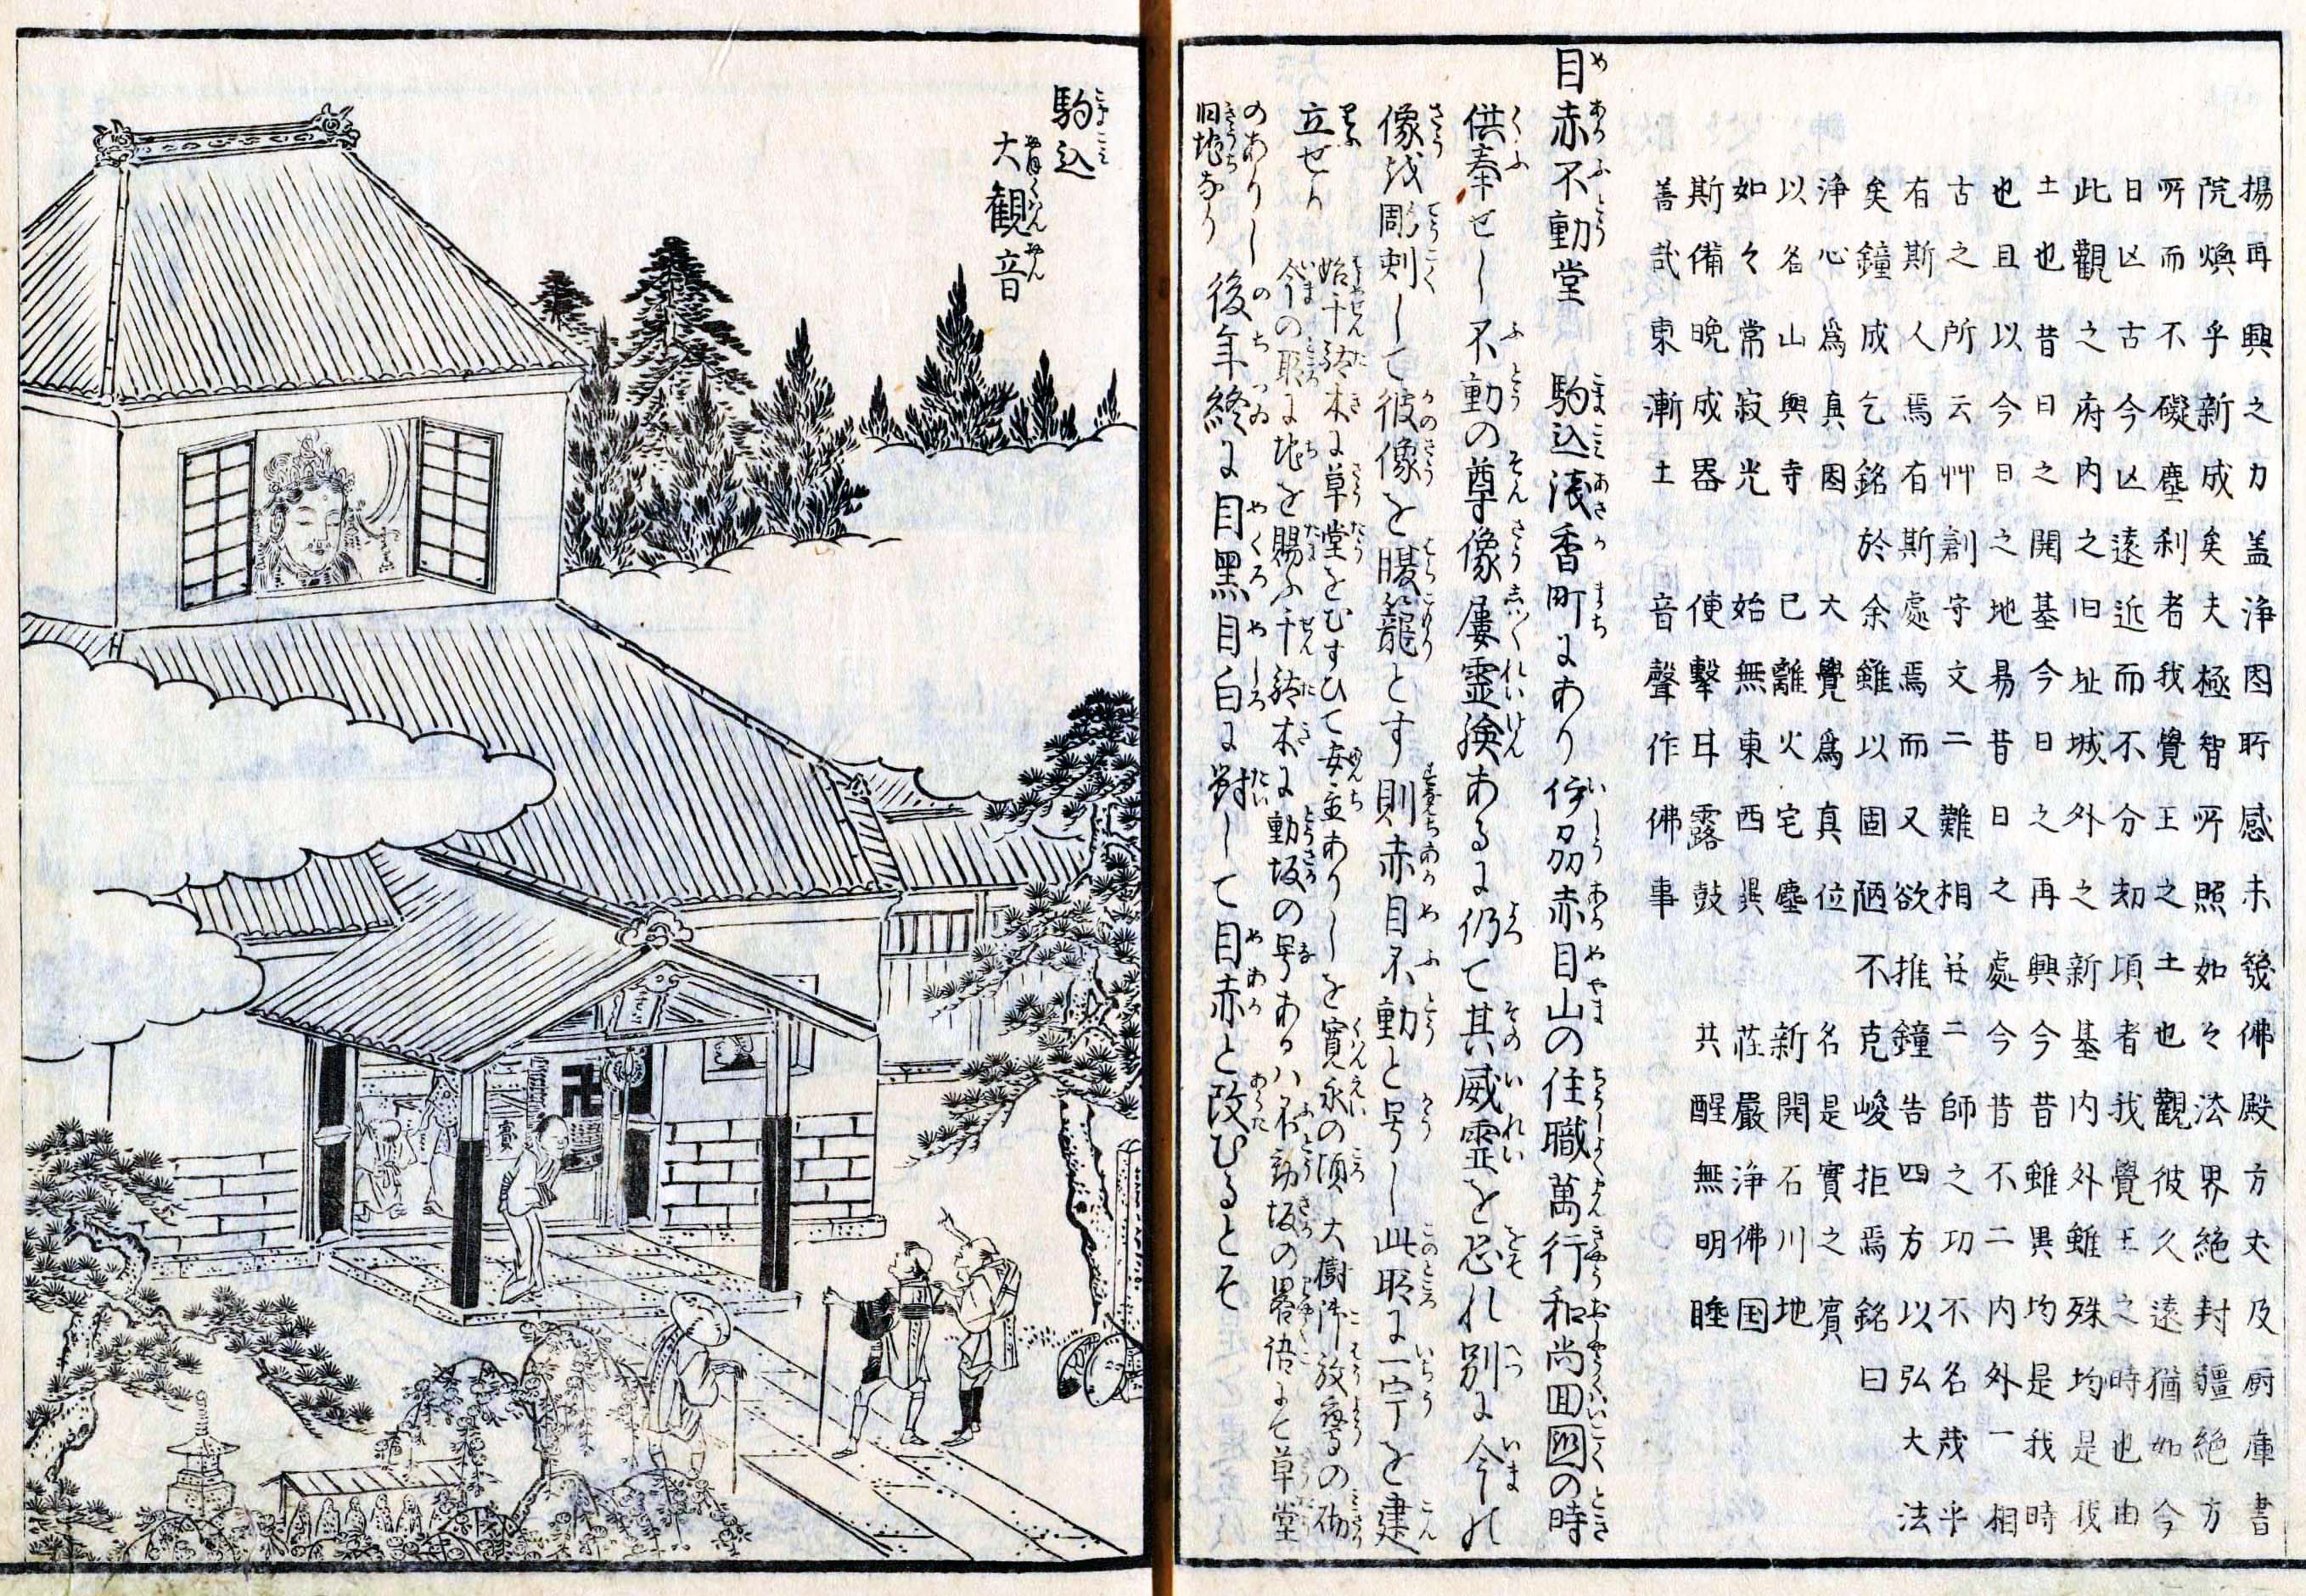 揚再興之力盖淨因所感未幾佛殿方丈及厨庫書
院煥乎新成矣夫極智所照如々法界絶封疆絶方
所而不礙塵刹者我覺王之土也觀彼久遠猶如今
日亾古今亾遠近而不分刧頃者我覺王之時也由
此觀之府内之旧址城外之新基内外雖殊均是我
土也昔日之開基今日之再興今昔雖異均是我時
也且以今日之地易昔日之處今昔不二内外一相
古之所云艸創守文二難相并二師之功不名茂乎
有斯人焉有斯處焉而又欲推鐘告四方以弘大法
矣鐘成乞銘於余雖以固陋不克峻拒焉銘曰
淨心爲真因　大覺爲真位　名是實之賓
以名山興寺　已離火宅塵　新開石川地
如々常寂光　始無東西異　莊嚴淨佛国
斯備晩成器　使擊耳露鼓　共醒無明睡
善哉東漸土　音聲作佛事
目赤不動堂　駒込浅香町にあり伊州赤目山の住職萬行和尚回國の時
供奉せし不動の尊像屢霊験あるに仍て其威霊を恐れ別に今の
像を彫刻して彼像を腹籠とす則赤目不動と号し此所に一宇を建
立せり
始千駄木に草堂をむすひて安置ありしを寛永の頃大樹御放鷹の砌
今の所に地を賜ふ千駄木に動坂の号あるハ不動坂の畧語にて草堂
のありし
旧地なり
後年終に目黒目白に對して目赤と改むるとそ
駒込
大観音
卍